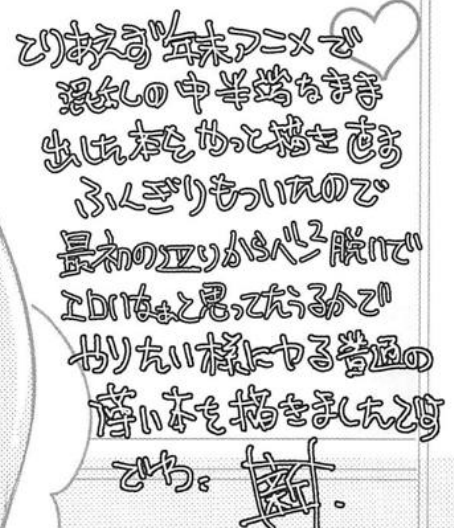 とりあえず年末アニメで
混乱しの中半端なまま
出した本をやっと描き直す
ふんぎりもついたので
最初の辺りから 脱いで
エロいなぁと思ってたうるかで
やりたい様にヤる普通の
薄い本を描きましたです
でわ。